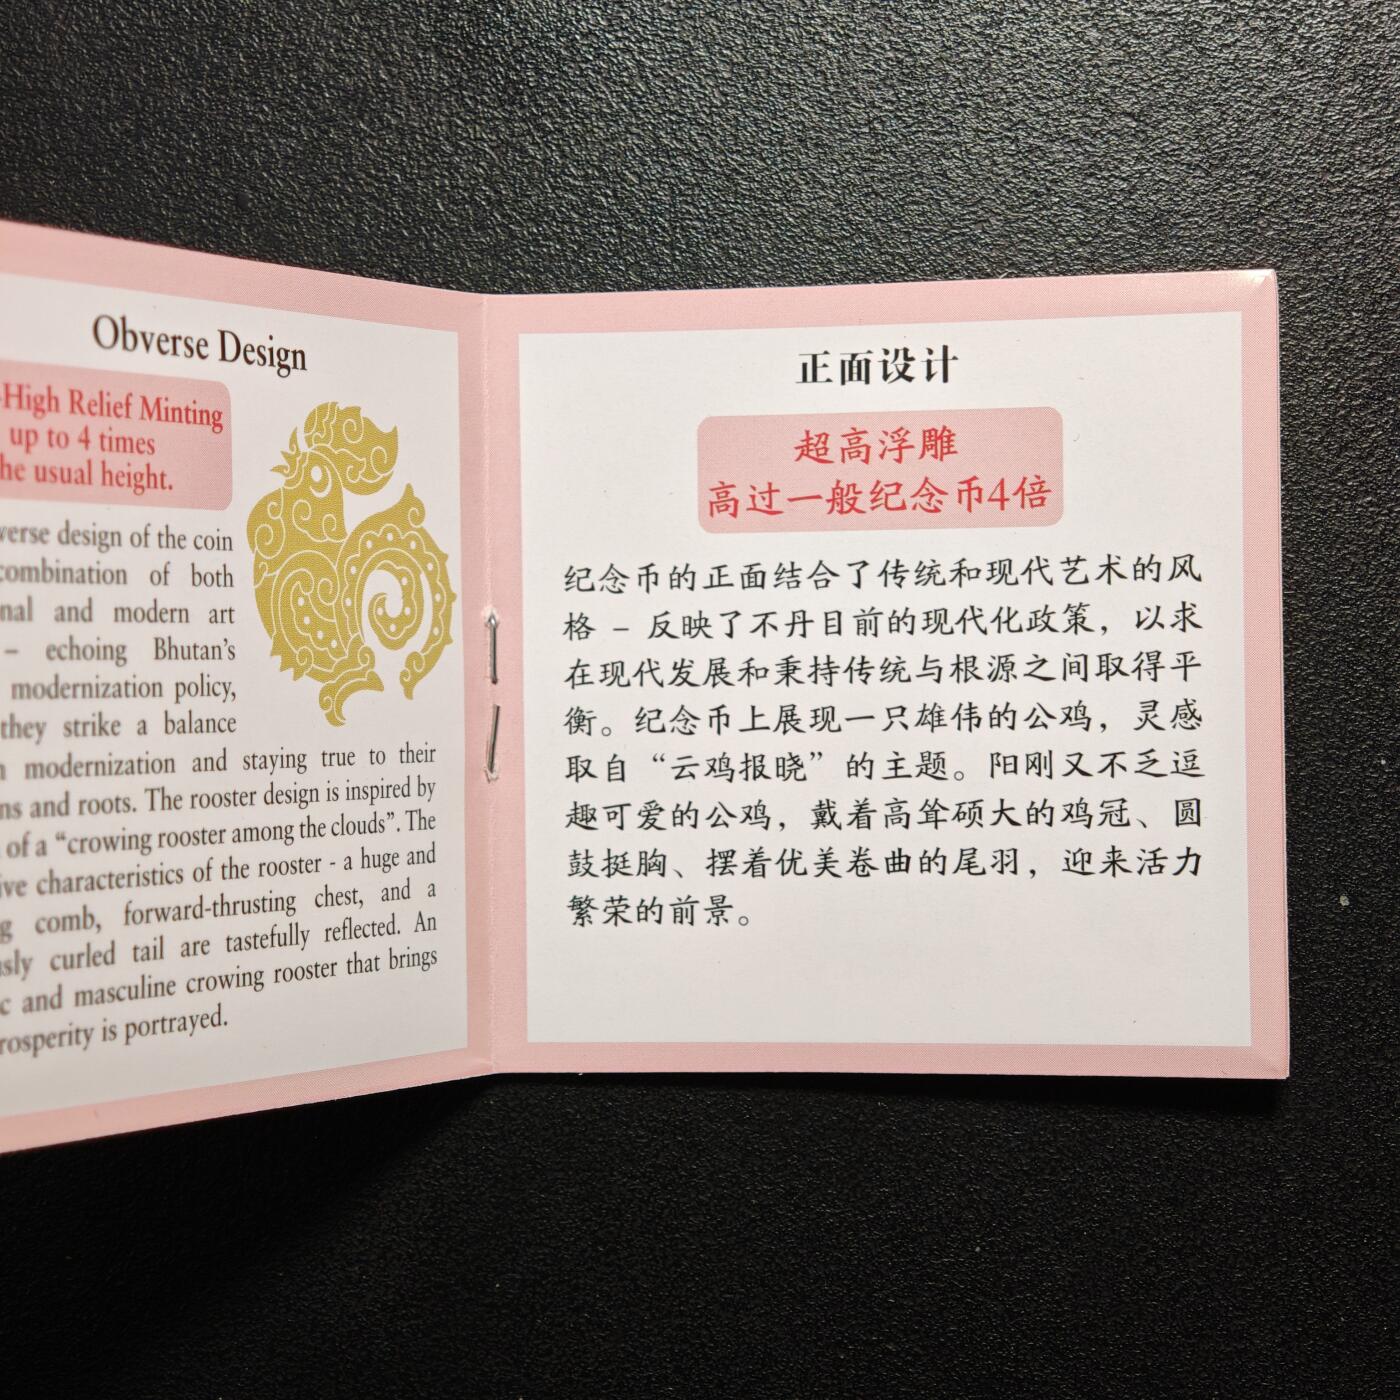 Obverse Design
High Relief Minting
up to 4 times
the usual height.
design of the coin
combination of both
and modern art
– echoing Bhutan's
modernization policy,
they strike a balance
modernization and staying true to their
and roots. The rooster design is inspired by
of a “crowing rooster among the clouds”. The
characteristics of the rooster - a huge and
comb, forward-thrusting chest, and a
curled tail are tastefully reflected. An
and masculine crowing rooster that brings
prosperity is portrayed.
正面设计
超高浮雕
高过一般纪念币4倍
纪念币的正面结合了传统和现代艺术的风
格 – 反映了不丹目前的现代化政策，以求
在现代发展和秉持传统与根源之间取得平
衡。纪念币上展现一只雄伟的公鸡，灵感
取自“云鸡报晓”的主题。阳刚又不乏逗
趣可爱的公鸡，戴着高耸硕大的鸡冠、圆
鼓挺胸、摆着优美卷曲的尾羽，迎来活力
繁荣的前景。